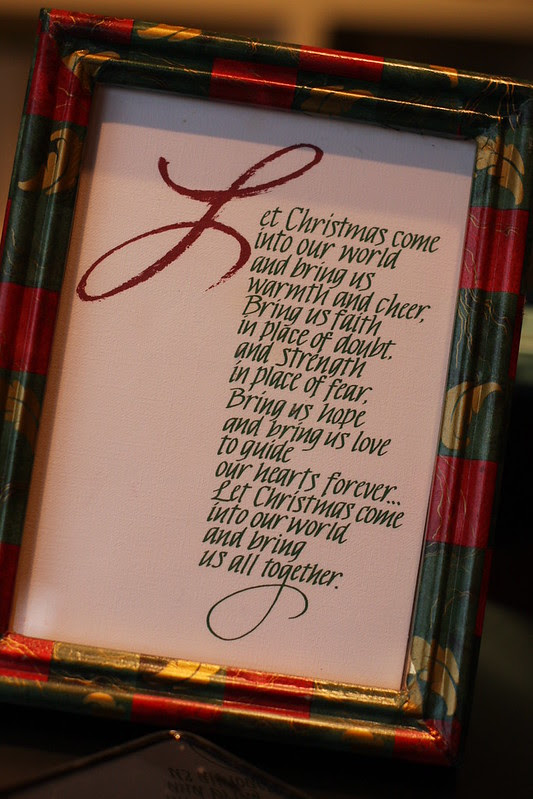 Let Christmas come
into our world
and bring us
warmth and cheer,
Bring us faith
in place of doubt,
and strength
in place of fear,
Bring us hope
and bring us love
to guide
our hearts forever...
Let Christmas come
into our world
and bring
us all together.